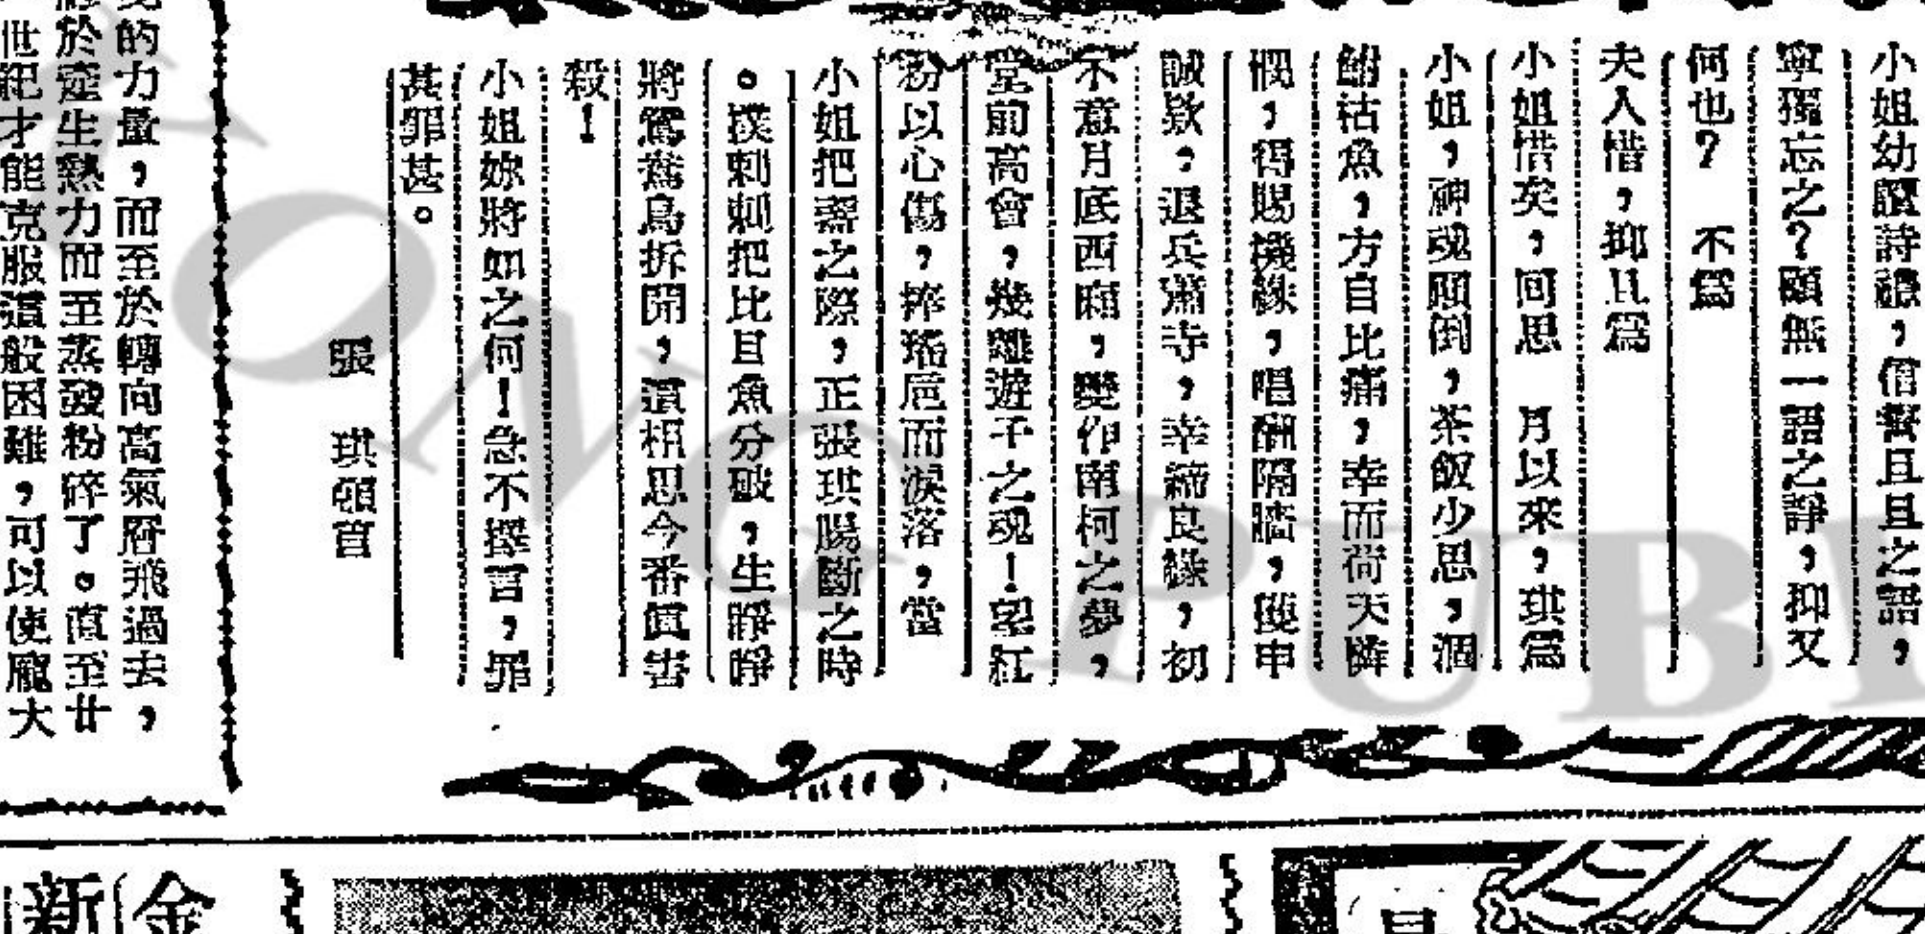 小姐幼讀詩禮,信誓旦旦之語,
寧獨忘之?顧無一語之諍,抑又
何也? 不爲
夫人惜,抑且爲
小姐惜矣,回思 月以來,琪爲
小姐,神魂顚倒,茶飯少思,涸
鮒枯魚,方自比痛,幸而荷天憐
憫,得賜機緣,唱酬隔牆,獲申
誠欵,退兵蕭寺,幸締良緣,初
不意月底西廂,變作南柯之夢,
堂前高會,幾離遊子之魂!望紅
粉以心傷,捧瑤巵而淚落,當
小姐把盞之際,正張琪腸斷之時
。撲剌剌把比目魚分破,生睜睜
將鴛鴦鳥拆開,這相思今番眞害
殺!
小姐妳將如之何!急不擇言,罪
甚罪甚。
張 琪頓首
的力量,而至於轉向高氣層飛過去,
於產生熱力而至蒸發粉碎了。直至廿
世紀才能克服這般困難,可以使龐大
CONG PUB
金
新